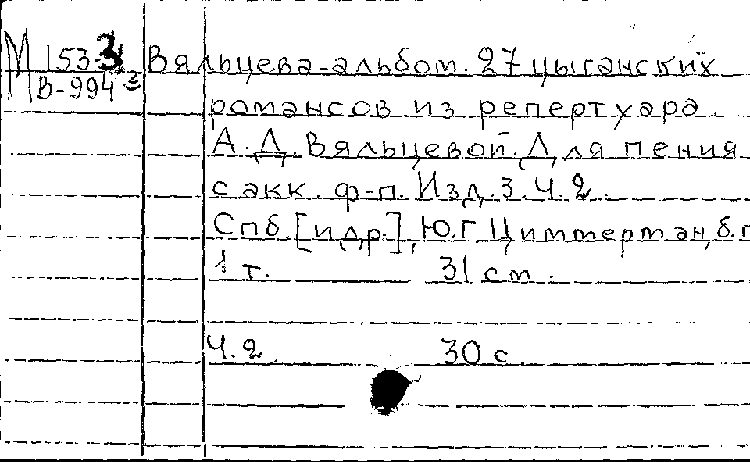 М 153-3 Вяльцева-альбом. 27 цыганских
В-994 3
романсов из репертуара
А.Д. Вяльцевой. Для пения
с акк. ф-п. Изд. 3. Ч.2.
Спб. [и др.], Ю.Г Циммерман, б.г
1 т. 31 см.
Ч.2. 30 с.